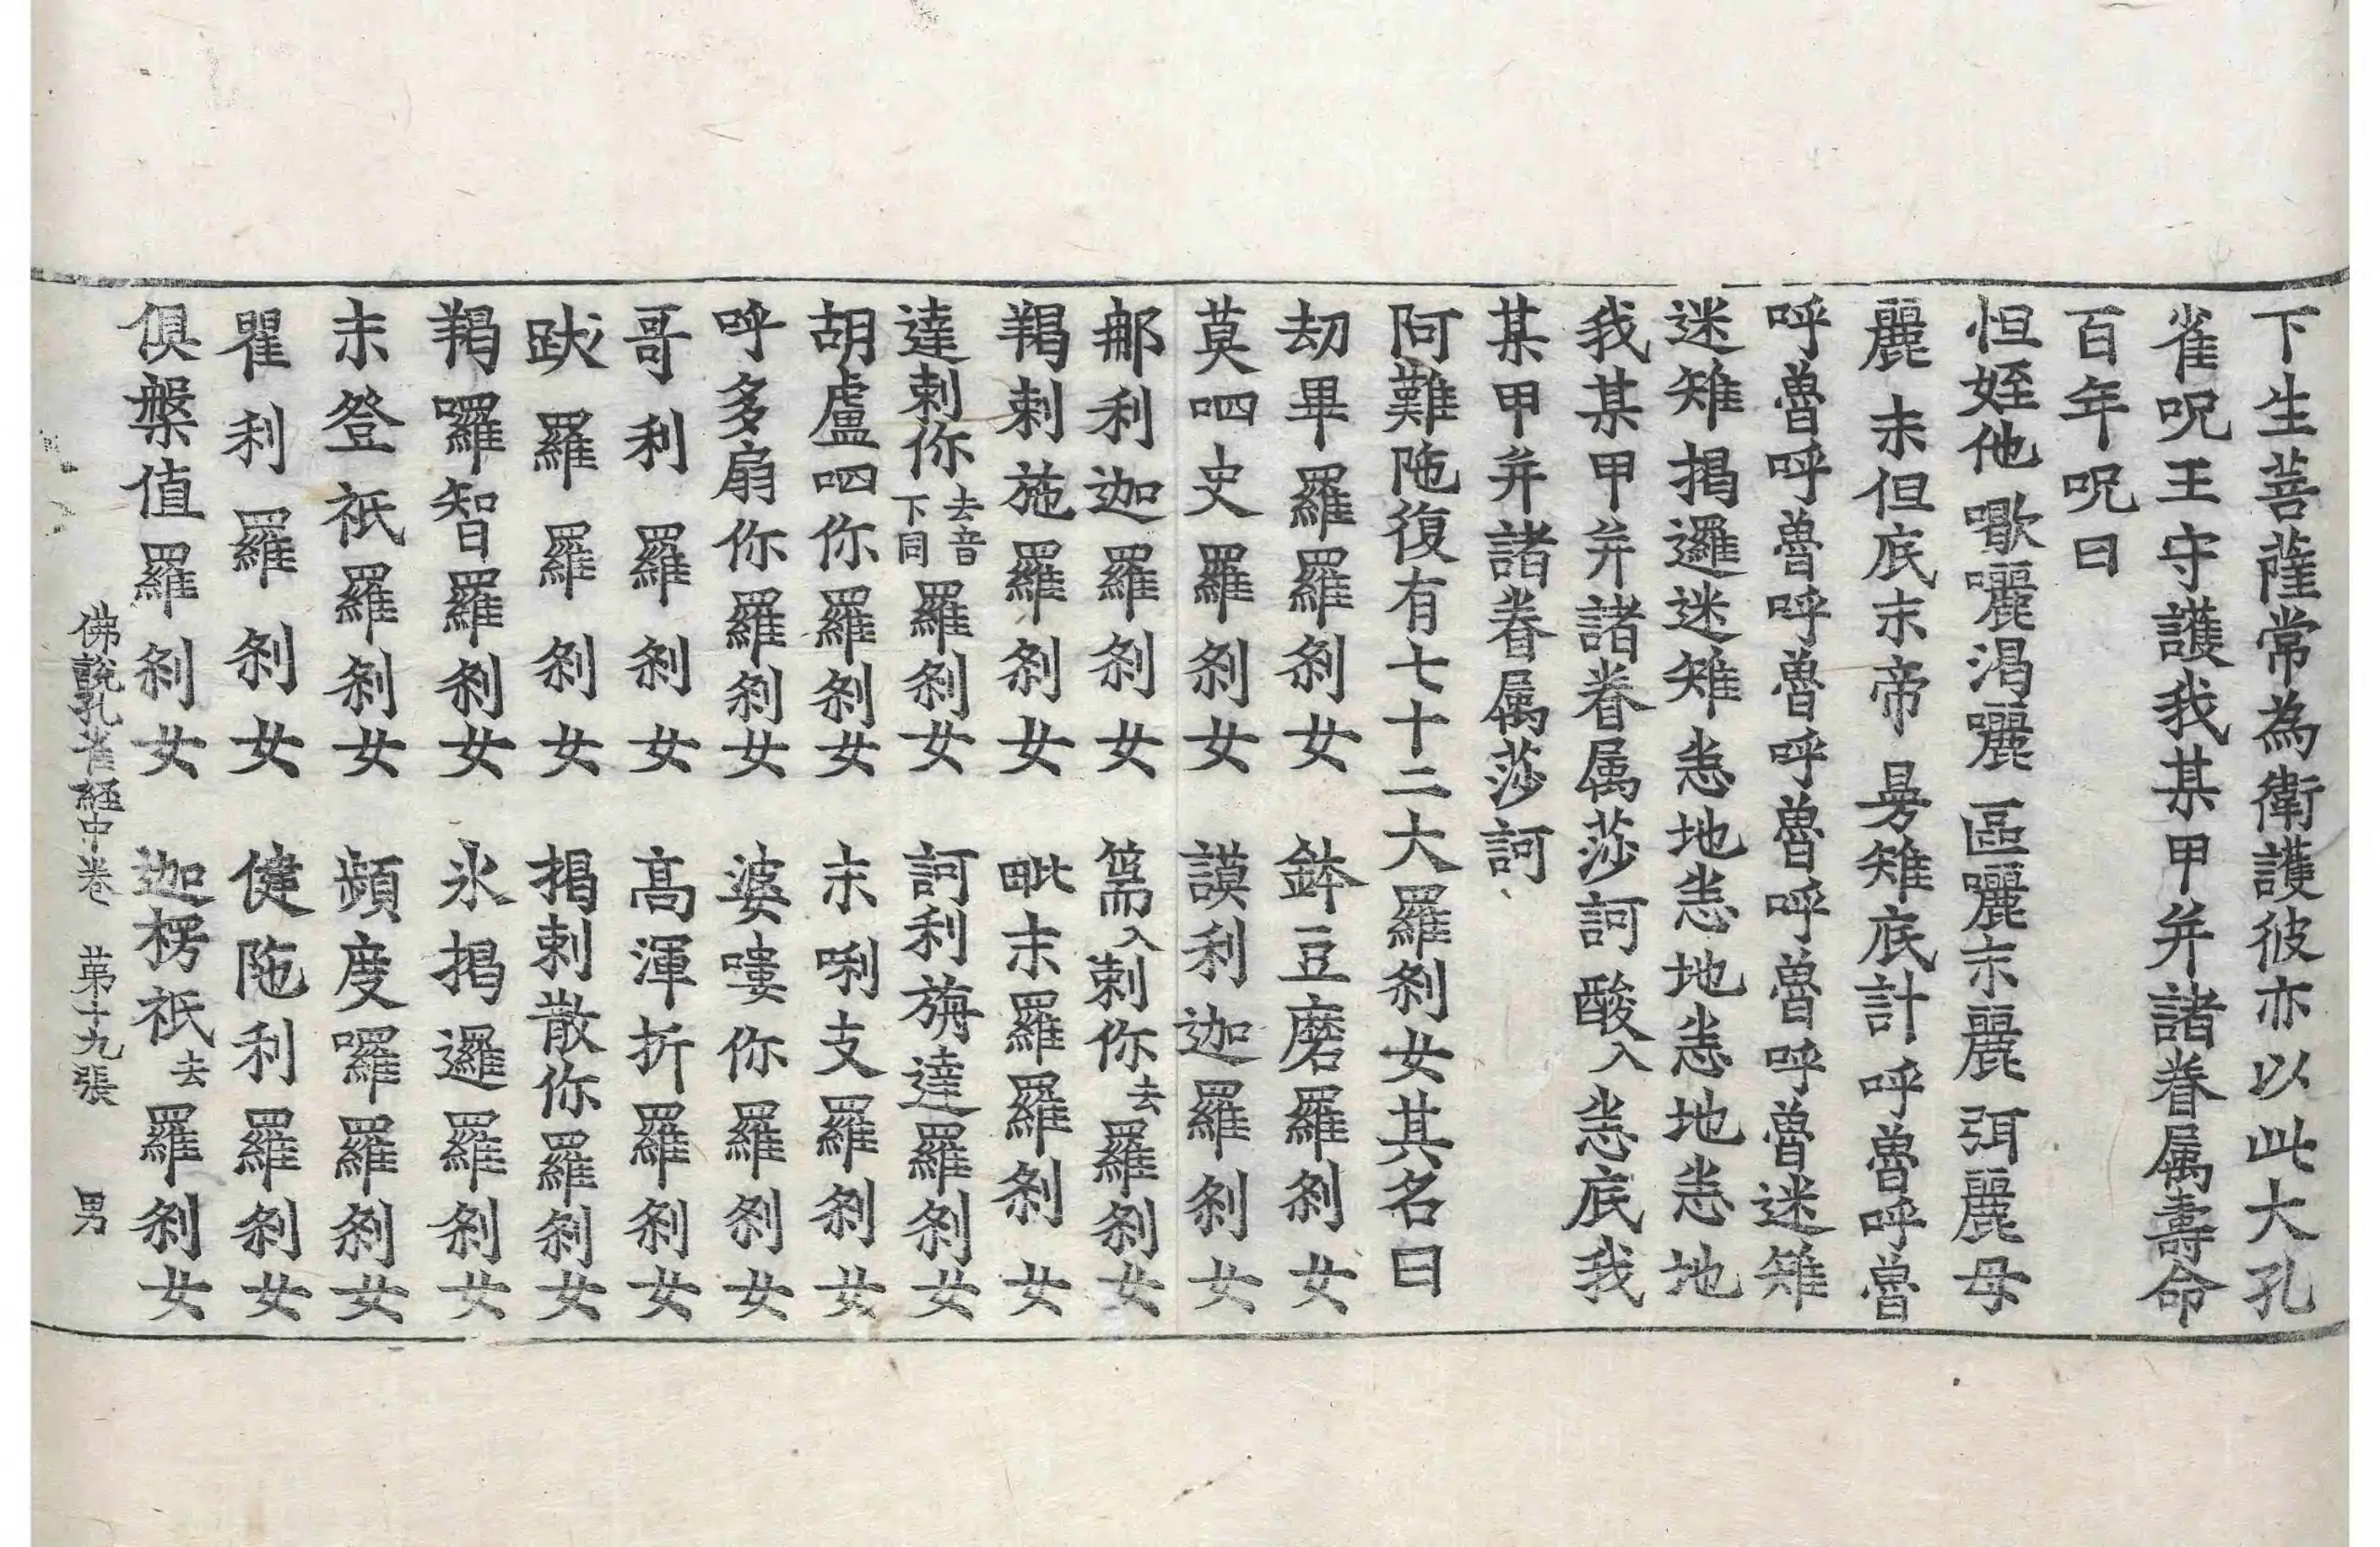 下生菩薩常為衛護彼亦以此大孔
雀呪王守護我某甲并諸眷属壽命
百年呪曰
怛姪他 㘑囉渴囉 區囉末麗 弭麗 母
麗 末但底末帝 曼雉底計 呼魯呼魯
呼魯呼魯呼魯呼魯呼魯呼魯迷雉
迷雉揭邏迷雉恙地恙地恙地恙地
我某甲并諸眷属莎訶 醙入恙底我
某甲并諸眷属莎訶
阿難陁復有七十二大羅剎女其名曰
劫畢羅羅剎女 鉢豆磨羅剎女
莫呬史羅剎女 謨利迦羅剎女
那利迦羅剎女 篅入剌你去羅剎女
羯剌施羅剎女 毗末羅羅剎女
達剌你去音下同羅剎女 訶利旃達羅剎女
胡盧呬你羅剎女 末唎支羅剎女
呼多扇你羅剎女 婆嘍你羅剎女
哥利羅剎女 高渾折羅剎女
跋羅羅剎女 揭剌散你羅剎女
羯囉智羅剎女 氷揭邏羅剎女
末登祇羅剎女 頻度囉羅剎女
瞿利羅剎女 健陁利羅剎女
俱槃值羅剎女 迦楞祇去羅剎女
佛說孔雀経中卷 苐十九張 男